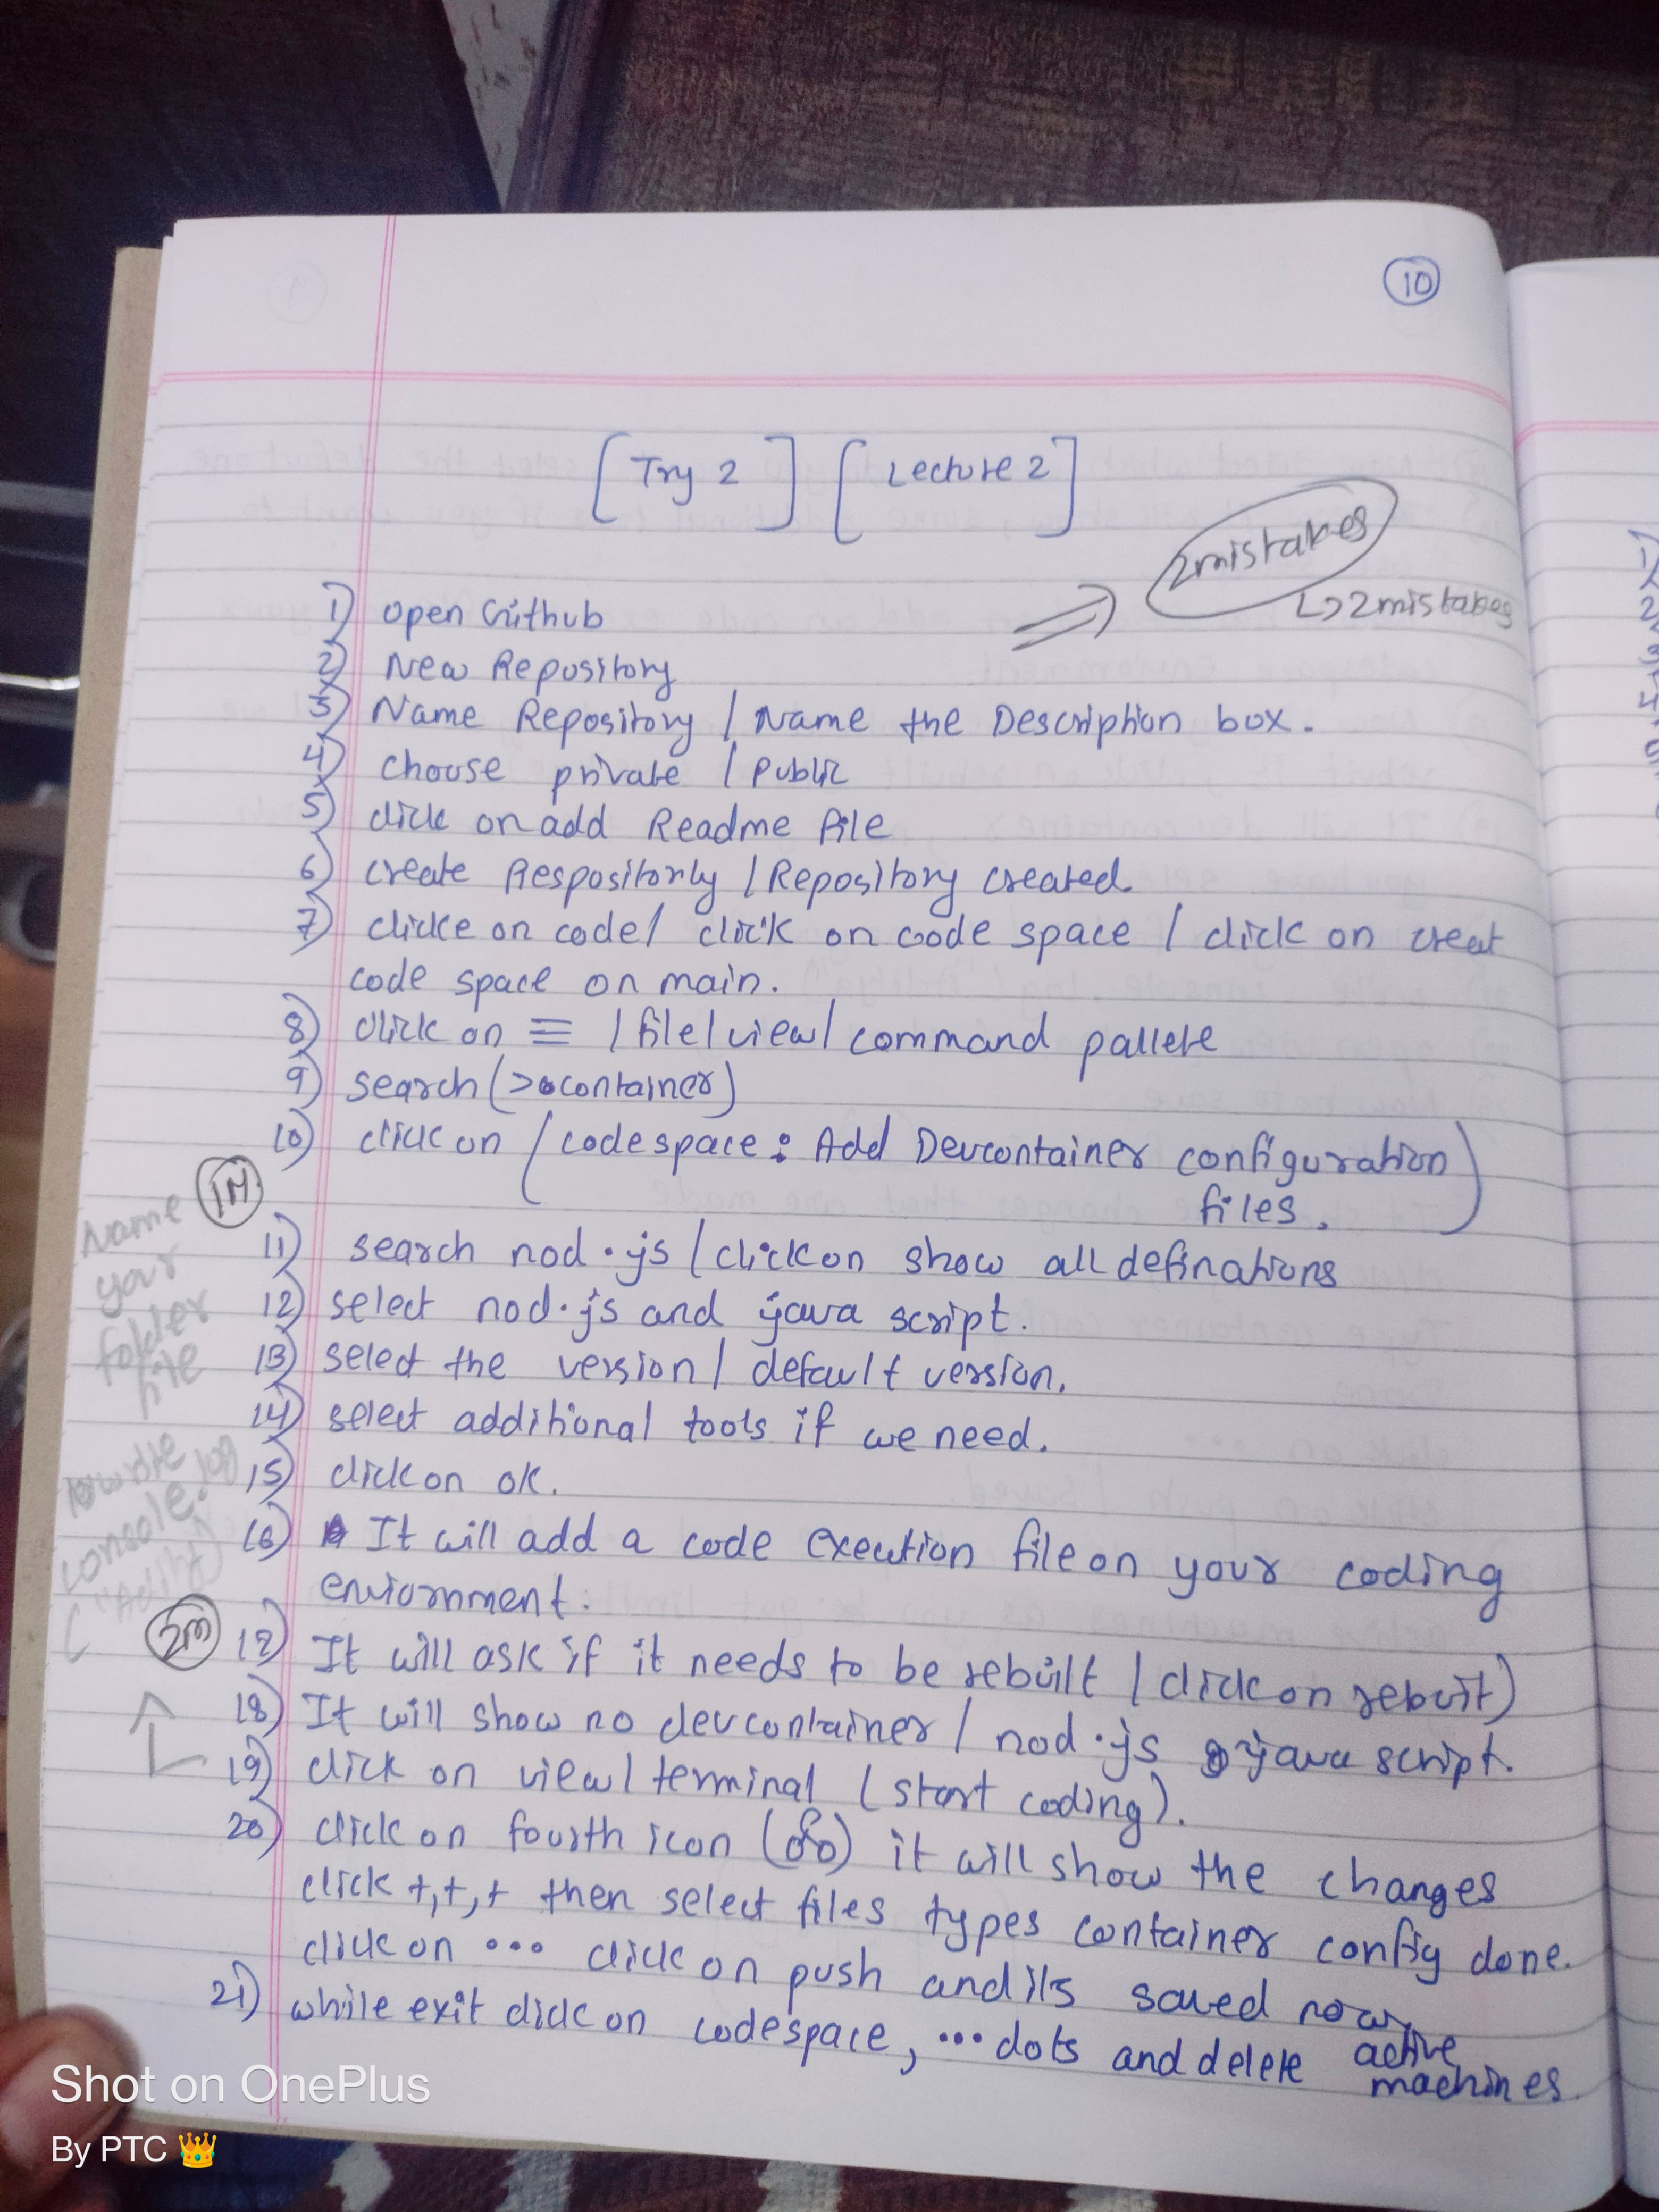 10
[Try 2] [Lecture 2]
2mistakes
↳2mistakes
1) open Github
2) New Repository
3) Name Repository / Name the Description box.
4) choose private / Public
5) click on add Readme file
6) create Respositorly / Repository created.
7) clicke on code/ click on code space / click on creat
code space on main.
8) click on ≡ / file/view/ command pallete
9) search (>container)
10) click on (codespace : Add Devcontainer configuration
files.)
1M
Name
your
folder
file
11) search nod.js / click on show all definations
12) select nod.js and java script.
13) select the version / default version.
14) select additional tools if we need.
write
console.log
15) click on ok.
16) It will add a code exection file on your coding
enviornment.
2m
17) It will ask if it needs to be rebuilt / click on rebuit)
18) It will show no devcontainer / nod.js java script.
19) click on view/terminal (start coding).
20) click on fourth icon it will show the changes
click +,+,+ then select files types container config done.
click on ••• click on push and its saved now
21) while exit click on codespace, ••• dots and delete active
machines.
Shot on OnePlus
By PTC 👑